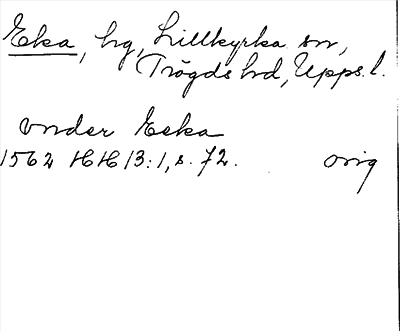 Eka, hg, Lillkyrka sn,
(Trögds hd, Upps. l.
vnder Eeka
1562 HH 13:1, s. 72. orig